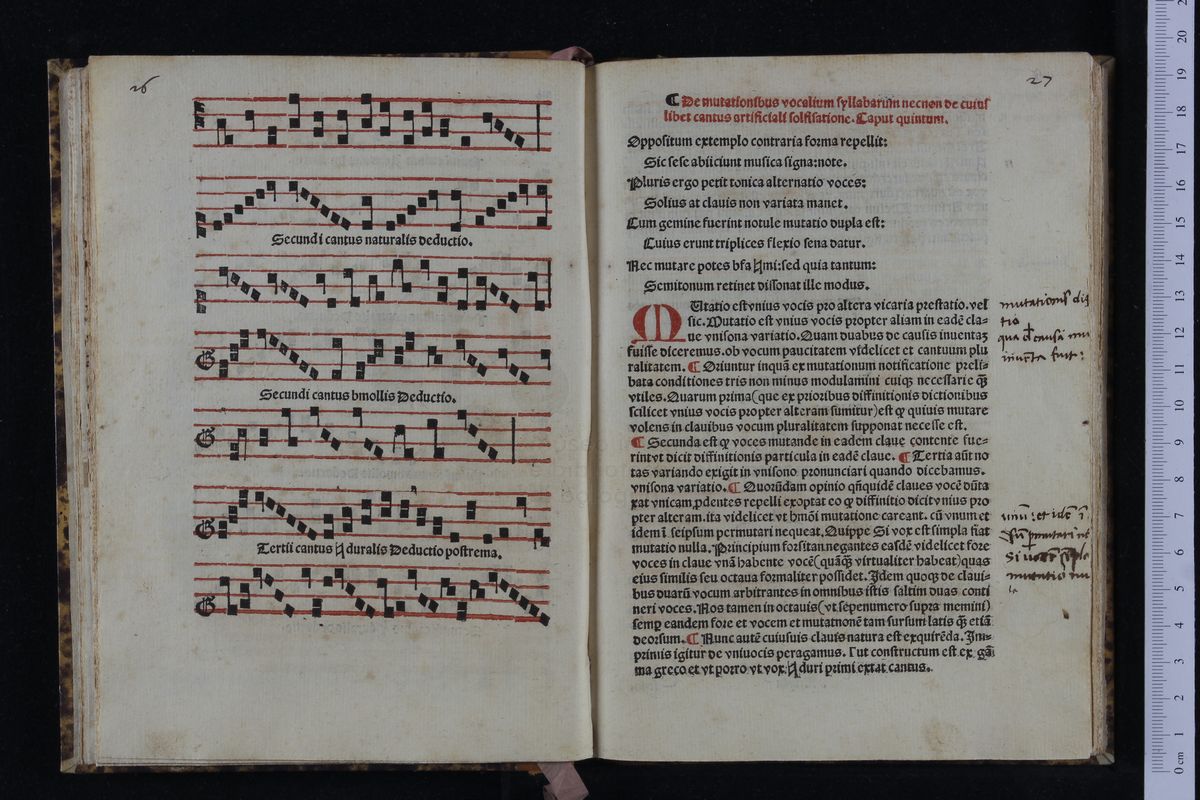 26
Secundi cantus naturalis deductio.
Secundi cantus bmollis Deductio.
Tertii cantus ♮ duralis Deductio postrema.
27
¶ De mutationibus vocalium syllabarum necnon de cuius
libet cantus artificiali solfisatione. Caput quintum.
Oppositum extemplo contraria forma repellit:
Sic sese abiiciunt musica signa: note.
Pluris ergo petit tonica alternatio voces:
Solius at clauis non variata manet.
Cum gemine fuerint notule mutatio dupla est:
Cuius erunt triplices flexio sena datur.
Nec mutare potes bfa ♮mi: sed quia tantum:
Semitonum retinet dissonat ille modus.
MUtatio est vnius vocis pro altera vicaria prestatio. vel
sic. Mutatio est vnius vocis propter aliam in eadē cla-
ue vnisona variatio. Quam duabus de causis inuentaʒ
fuisse diceremus. ob vocum paucitatem videlicet et cantuum plu
ralitatem. ¶ Oriuntur inquā ex mutationum notificatione preli-
bata conditiones tris non minus modulamini cuiqʒ necessarie q̄ʒ
vtiles. Quarum prima (que ex prioribus diffinitionis dictionibus
scilicet vnius vocis propter alteram sumitur) est qꝫ quiuis mutare
volens in clauibus vocum pluralitatem supponat necesse est.
¶ Secunda est qꝫ voces mutande in eadem claue contente fue-
rint vt dicit diffinitionis particula in eadē claue. ¶ Tertia aūt no
tas variando exigit in vnisono pronunciari quando dicebamus.
vnisona variatio. ¶ Quorūdam opinio qñquidē claues vocē dūta
xat vnicam prudentes repelli exoptat eo qꝫ diffinitio dicit vnius pro
pter alteram. ita videlicet vt hmōi mutatione careant. cū vnum et
idem ī seipsum permutari nequeat. Quippe Si vox est simpla fiat
mutatio nulla. Principium forsitan negantes easdē videlicet fore
voces in claue vnā habente vocē (quāqʒ virtualiter habeat) quas
eius similis seu octaua formaliter possidet. Idem quoqʒ de claui-
bus duarū vocum arbitrantes in omnibus istis saltim duas conti
neri voces. Nos tamen in octauis (vt sepenumero supra memini)
semp eandem fore et vocem et mutatnonē tam sursum latis q̄ʒ etiā
deorsum. ¶ Nunc autē cuiusuis clauis natura est exquirēda. Im-
primis igitur de vniuocis peragamus. Γ ut constructum est ex gā
ma greco et vt porro vt vox ♮ duri primi extat cantus.